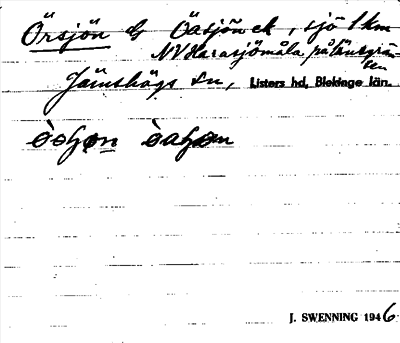 Örsjön & Öasjön ek, sjö 1 km
NV Harasjömåla på länsgrän
sen
Jämshögs sn, Listers hd, Blekinge län.
J. SWENNING 1946